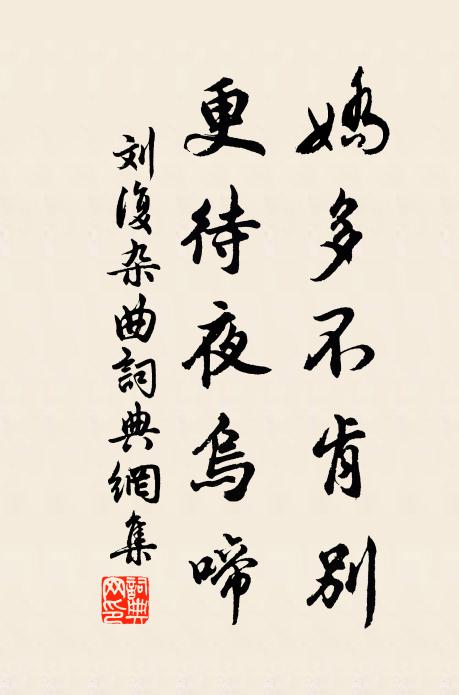 嬌多不肯别
更待夜烏啼
刘復杂曲詞典網集
詞典网印